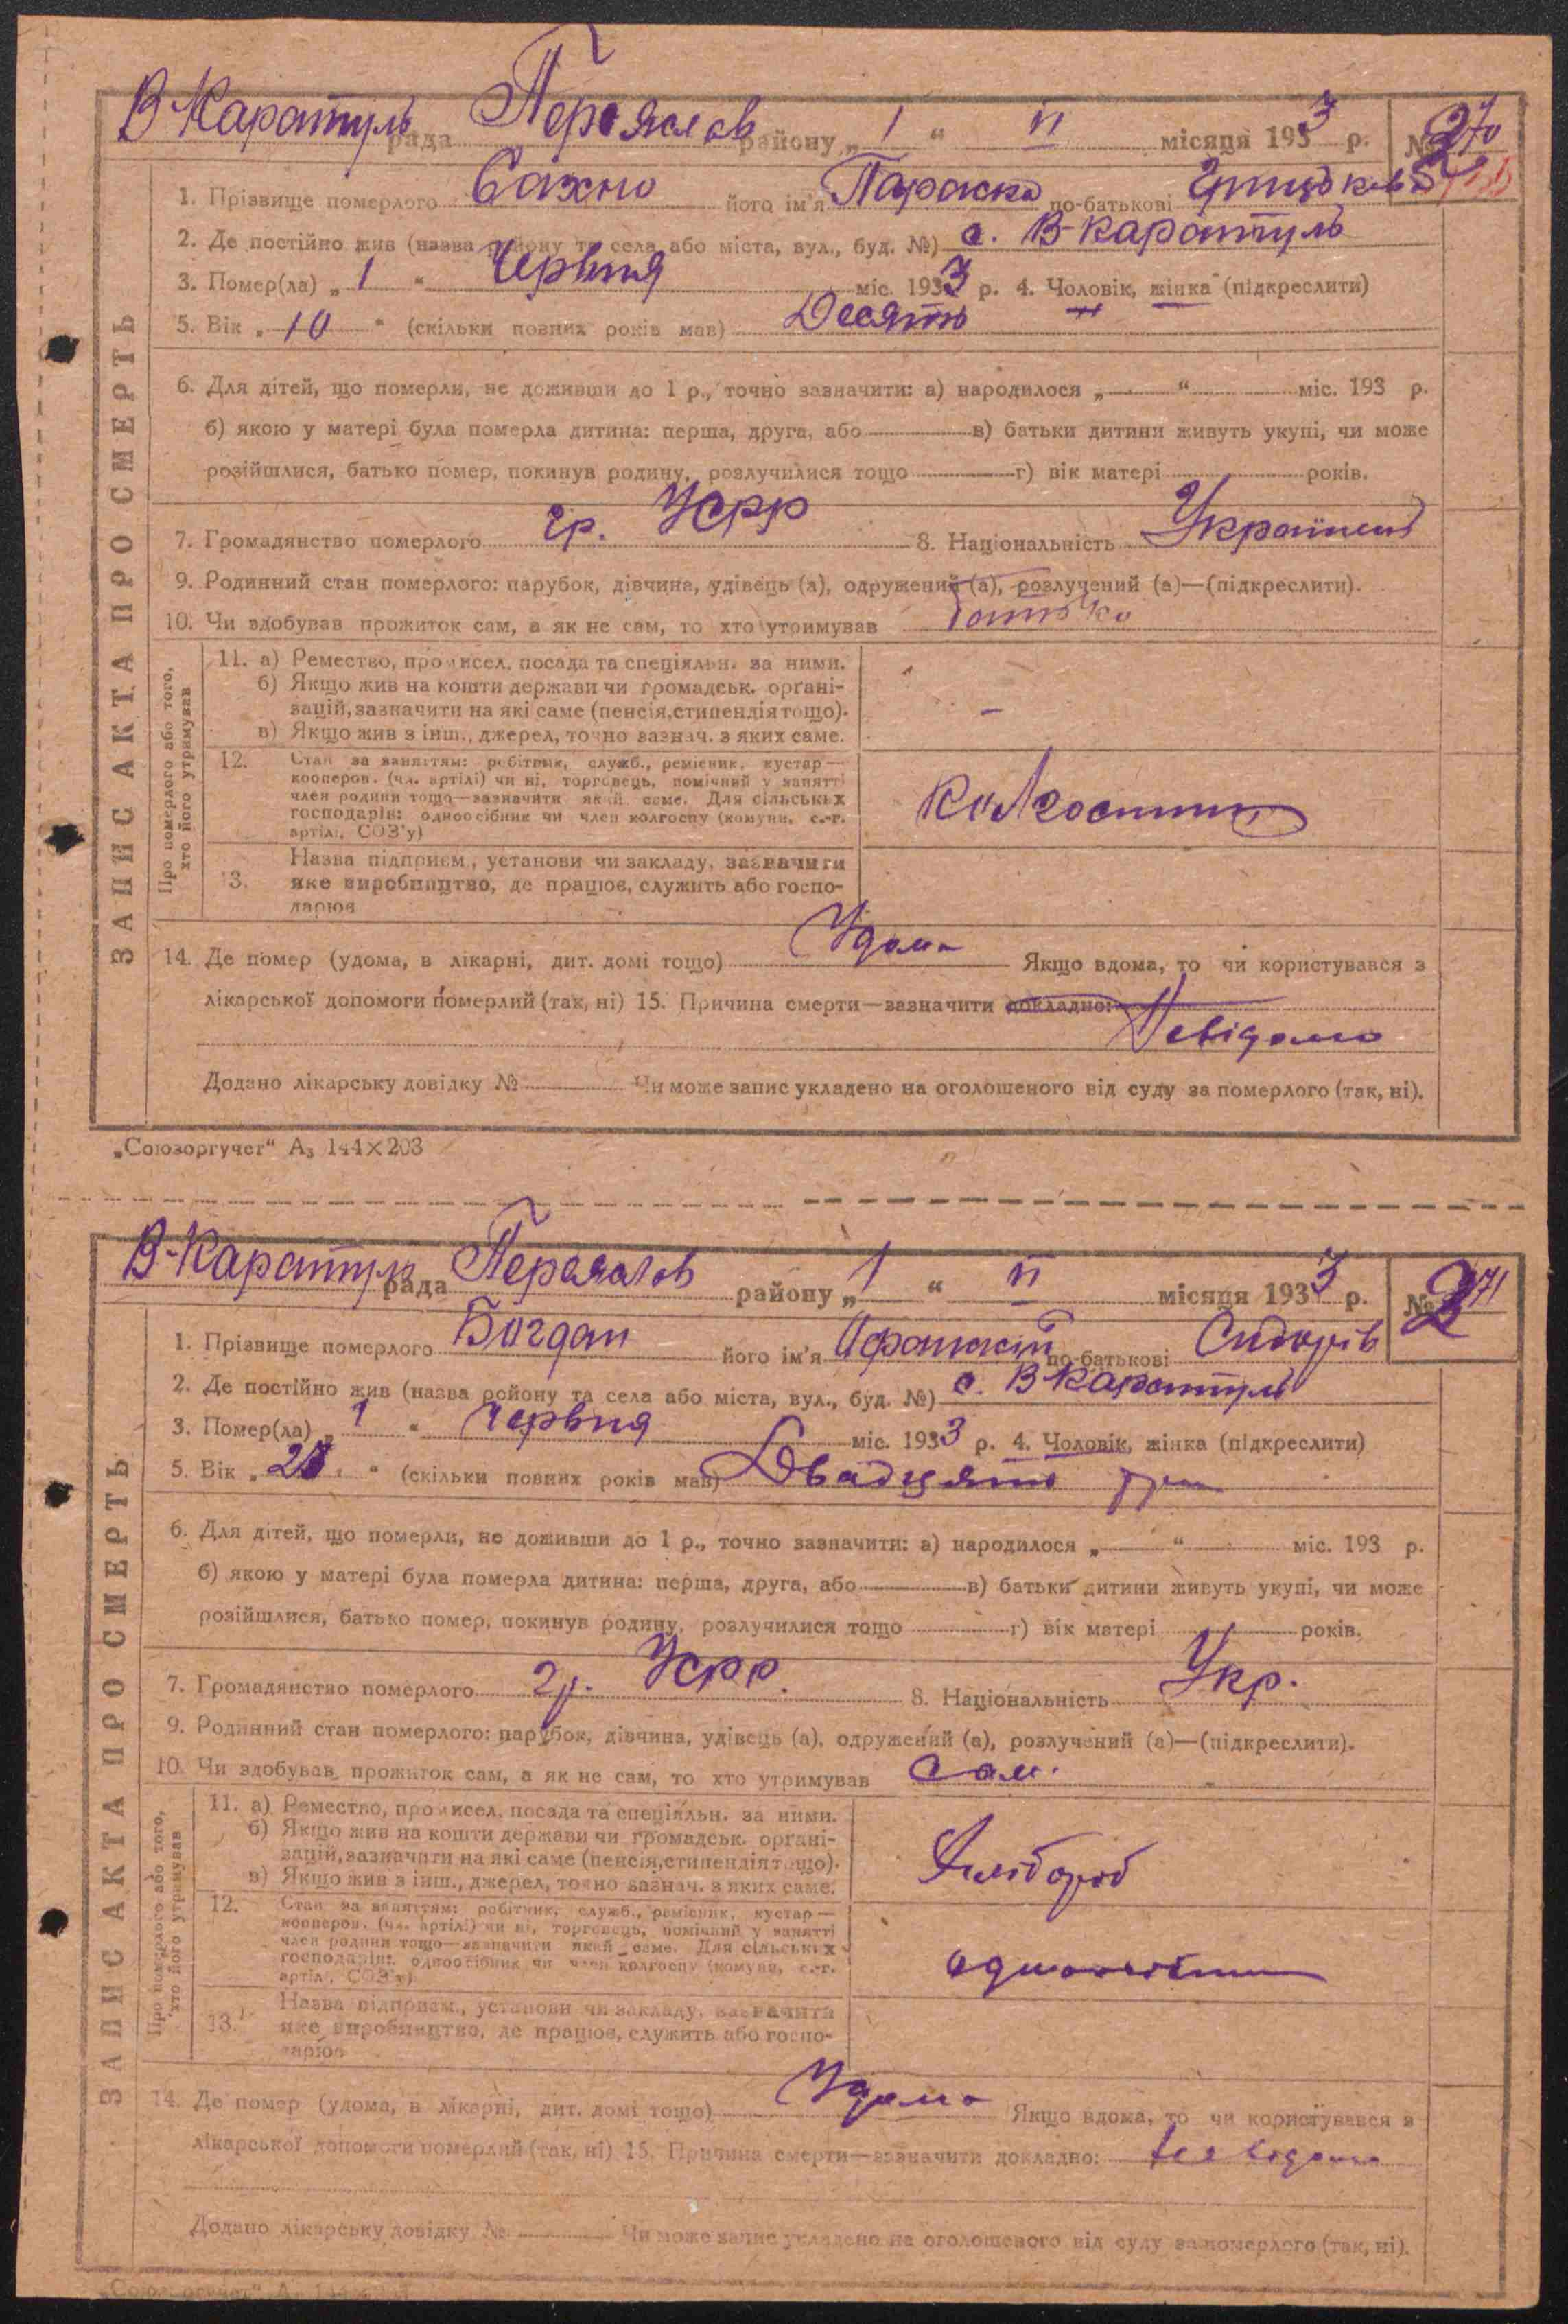 В-Каратуль рада Переяслов району „ 1 “ VI місяця 1933 р. № 270
1. Прізвище померлого Сахно його ім'я Параска по-батькові
2. Де постійно жив (назва району та села або міста, вул., буд. №) с. В-Каратуль
3. Помер(ла) „ 1 “ Червня міс. 1933 р. 4. Чоловік, жінка (підкреслити)
5. Вік „ 10 “ (скільки повних років мав) Десять
6. Для дітей, що померли, не доживши до 1 р., точно зазначити: а) народилося „ “ міс. 193 р.
б) якою у матері була померла дитина: перша, друга, або в) батьки дитини живуть укупі, чи може
розійшлися, батько помер, покинув родину, розлучилися тощо г) вік матері років.
7. Громадянство померлого гр. УСРР 8. Національність
9. Родинний стан померлого: парубок, дівчина, удівець (а), одружений (а), розлучений (а)—(підкреслити).
10. Чи здобував прожиток сам, а як не сам, то хто утримував батько
ЗАПИС АКТА ПРО СМЕРТЬ
Про померлого або того, хто його утримував
11. а) Ремество, промисел, посада та спеціяльн. за ними.
б) Якщо жив на кошти держави чи громадськ. органі-
зацій, зазначити на які саме (пенсія, стипендія тощо).
в) Якщо жив з інш., джерел, точно зазнач. з яких саме.
12. Стан за заняттям: робітник, служб., ремісник, кустар—
кооперов. (чл. артілі) чи ні, торговець, помічний у занятті
член родини тощо—зазначити який саме. Для сільських
господарів: одноосібник чи член колгоспу (комуни, с.-г.
артілі, СОЗ'у)
Колгоспник
13. Назва підприєм., установи чи закладу, зазначити
яке виробництво, де працює, служить або госпо-
дарює
14. Де помер (удома, в лікарні, дит. домі тощо) Удома Якщо вдома, то чи користувався з
лікарської допомоги померлий (так, ні) 15. Причина смерти—зазначити докладно:
Невідома
Додано лікарську довідку № Чи може запис укладено на оголошеного від суду за померлого (так, ні).
„Союзоргучет“ А₃ 144×203
В-Каратуль рада Переяслов району „ 1 “ VI місяця 1933 р. № 271
1. Прізвище померлого Богдан його ім'я по-батькові Сидорів
2. Де постійно жив (назва району та села або міста, вул., буд. №) с. В Каратуль
3. Помер(ла) „ 1 “ Червня міс. 1933 р. 4. Чоловік, жінка (підкреслити)
5. Вік „ 23 “ (скільки повних років мав) Двадцять три
6. Для дітей, що померли, не доживши до 1 р., точно зазначити: а) народилося „ “ міс. 193 р.
б) якою у матері була померла дитина: перша, друга, або в) батьки дитини живуть укупі, чи може
розійшлися, батько помер, покинув родину, розлучилися тощо г) вік матері років.
7. Громадянство померлого гр. УСРР. 8. Національність Укр.
9. Родинний стан померлого: парубок, дівчина, удівець (а), одружений (а), розлучений (а)—(підкреслити).
10. Чи здобував прожиток сам, а як не сам, то хто утримував Сам.
ЗАПИС АКТА ПРО СМЕРТЬ
Про померлого або того, хто його утримував
11. а) Ремество, промисел, посада та спеціяльн. за ними.
б) Якщо жив на кошти держави чи громадськ. органі-
зацій, зазначити на які саме (пенсія, стипендія тощо).
в) Якщо жив з інш., джерел, точно зазнач. з яких саме.
Хлібороб
12. Стан за заняттям: робітник, служб., ремісник, кустар—
кооперов. (чл. артілі) чи ні, торговець, помічний у занятті
член родини тощо—зазначити який саме. Для сільських
господарів: одноосібник чи член колгоспу (комуни, с.-г.
артілі, СОЗ'у)
одноосібник
13. Назва підприєм., установи чи закладу, зазначити
яке виробництво, де працює, служить або госпо-
дарює
14. Де помер (удома, в лікарні, дит. домі тощо) Удома Якщо вдома, то чи користувався з
лікарської допомоги померлий (так, ні) 15. Причина смерти—зазначити докладно: невідома
Додано лікарську довідку № Чи може запис укладено на оголошеного від суду за померлого (так, ні).
„Союзоргучет“ А₃ 144×203